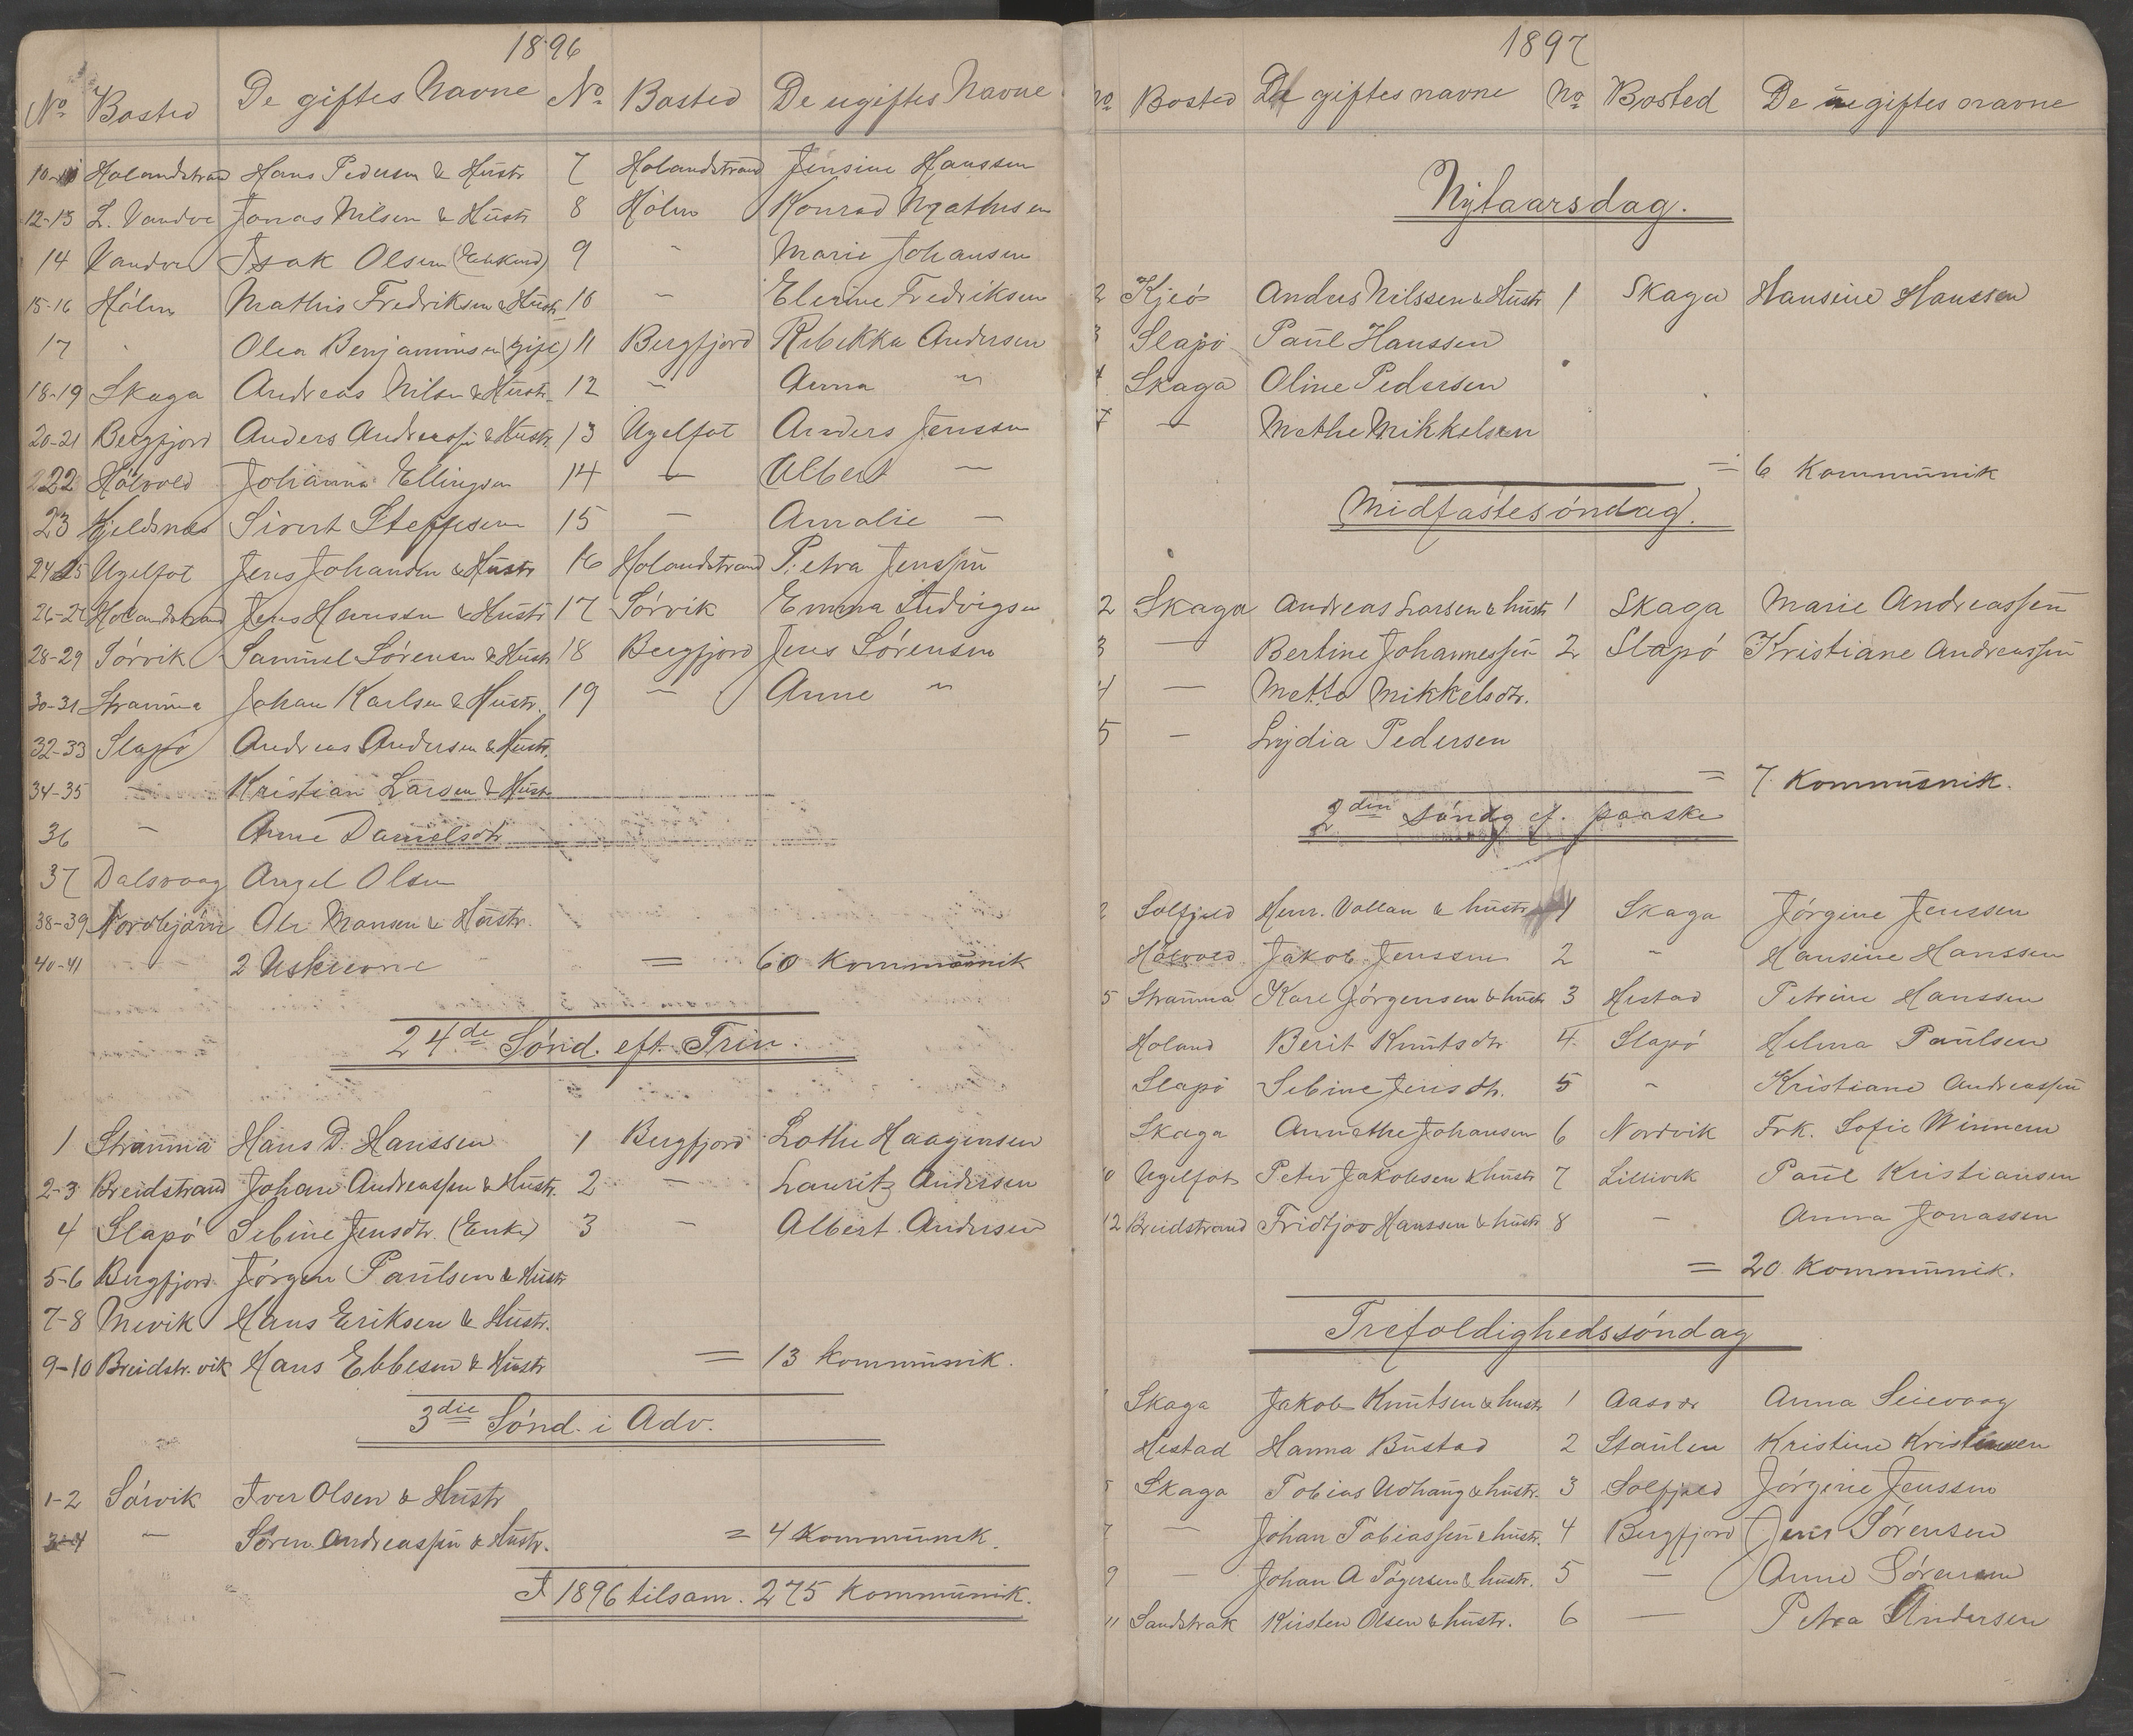 1896
No Bosted De giftes Navne No Bosted De ugiftes Navne
10-11 Holandstrand Hans Pedersen & Hustr 7 Holandstrand Jensine Hanssen
12-13 L. Vandve Jonas Nilsen & Hustr 8 Hólm Konrad Mathisen
14 Vandve Isak Olsen (Enkem) 9 " Marie Johansen
15-16 Hólm Mathis Fredriksen & Hustr 10 " Elerine Fredriksen
17 " Olea Benjaminsen (gift) 11 Bergfjord Rebekka Andersen
18-19 Skaga Andreas Nilsen & Hustr. 12 " Anna "
20-21 Bergfjord Anders Andreassen & Hustr. 13 Ugelfot Anders Jenssen
22 Hólvold Johanna Ellingsen 14 — Albert —
23 Kjeldsnes Sivert Steffesen 15 — Amalie —
24-25 Ugelfot Jens Johansen & Hustr 16 Holandstrand Petra Jenssen
26-27 Holandstrand Jens Hanssen & Hustr 17 Sórvik Emma Ludvigsen
28-29 Sórvik Samuel Sórensen & Hustr 18 Bergfjord Jens Sórensen
30-31 Stramma Johan Karlsen & Hustr. 19 — Anne "
32-33 Slapó Andreas Andersen & Hustr.
34-35 — Kristian Larsen & Hustr
36 — Anne Danielsdtr
37 Dalsvaag Angel Olsen
38-39 Ole Monsen & Hustr.
40-41 2 Uskrevne = 60 Kommunik
24de Sónd. eft. Trin.
1 Stramma Hans D. Hanssen 1 Bergfjord Lothe Haagensen
2-3 Breidstrand Johan Andreassen & Hustr. 2 — Lauritz Andersen
4 Slapó Sebine Jensdtr. (Enke) 3 — Albert Andersen
5-6 Bergfjord Jórgen Paulsen & Hustr
7-8 Mevik Hans Eriksen & Hustr.
9-10 Breidstr. vik Hans Ebbesen & Hustr = 13 Kommunik.
3die Sónd. i Adv.
1-2 Sórvik Iver Olsen & Hustr
3-4 — Sóren Andreassen & Hustr. = 4 Kommunik.
I 1896 tilsam. 275 Kommunik.
1897
No Bosted De giftes navne No Bosted De ugiftes navne
Nytaarsdag.
2 Kjeó Anders Nilssen & Hustr 1 Skaga Hansine Hanssen
3 Slapó Paul Hanssen
4 Skaga Oline Pedersen
— Methe Mikkelsen
= 6 Kommunik
Midfastesóndag.
2 Skaga Andreas Larsen & hustr 1 Skaga Marie Andreassen
3 — Bertine Johannessen 2 Slapó Kristiane Andreassen
4 — Mette Mikkelsdtr.
5 — Lydia Pedersen
= 7 Kommunik.
2den Sóndg ef. paaske
2 Solfjeld Henr. Vollan & hustr 1 Skaga Jórgine Jenssen
Hólvold Jakob Jenssen 2 " Hansine Hanssen
5 Stramma Karl Jórgensen & hustr 3 Hestad Petrine Hanssen
Holand Berit Knutsdtr 4 Slapó Helma Paulsen
Slapó Sebine Jensdtr. 5 " Kristiane Andreassen
Skaga Annethe Johansen 6 Nordvik Frk. Sofie Winnem
10 Ugelfot Peter Jakobsen & hustr 7 Lillivik Paul Kristiansen
12 Breidstrand Fridtjov Hanssen & hustr 8 — Anna Jonassen
= 20 Kommunik.
Trefoldighedssóndag
Skaga Jakob Knutsen & hustr 1 Aasvær Anna Seievaag
Hestad Hanna Bustad 2 Staulen Kristine Kristensen
5 Skaga Tobias Udhaug & hustr. 3 Solfjeld Jórgine Jenssen
7 — Johan Tobiassen & hustr. 4 Bergfjord Jens Sórensen
9 — Johan A Tógersen & hustr. 5 — Anne Sórensen
11 Sandstrak Kirsten Olsen & hustr. 6 — Petra Andersen